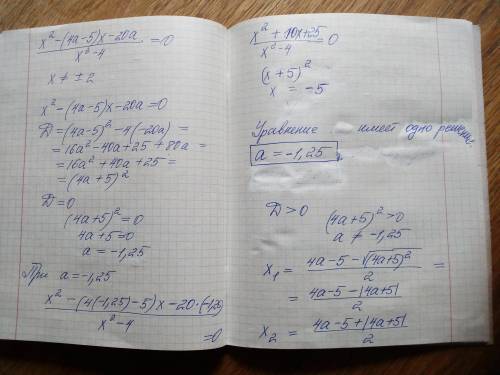 x² - (4a-5)x - 20a / x² - 4 = 0
x ≠ ± 2
x² - (4a-5)x - 20a = 0
D = (4a-5)² - 4(-20a) =
= 16a² - 40a + 25 + 80a =
= 16a² + 40a + 25 =
= (4a+5)²
D = 0
(4a+5)² = 0
4a+5 = 0
a = -1,25
При a = -1,25
x² - (4(-1,25)-5)x - 20·(-1,25) / x² - 4 = 0
x² + 10x + 25 / x² - 4 = 0
(x+5)²
x = -5
Уравнение имеет одно решение
a = -1,25,
D > 0
(4a+5)² > 0
a ≠ -1,25
x₁ = 4a-5-√(4a+5)² / 2 =
= 4a-5-|4a+5| / 2
x₂ = 4a-5+|4a+5| / 2